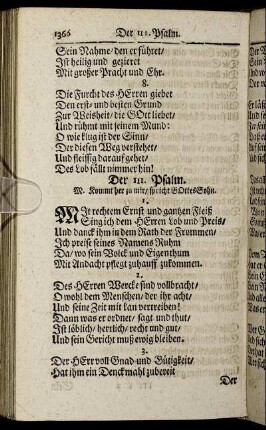 1366 Der 111. Psalm.
Sein Nahme/ den er führet/
Ist heilig und gezieret
Mit großer Pracht und Ehr.
8.
Die Furcht des HErren giebet
Den erst- und besten Grund
Zur Weisheit/ die GOtt liebet/
Und rühmt mit seinem Mund:
O wie klug ist der Sinn/
Der diesen Weg verstehet/
Und fleissig darauf gehet/
Des Lob fällt nimmer hin!
Der 111. Psalm.
M. Kommt her zu mir/ spricht GOttes Sohn.
1.
MIt rechtem Ernst und gantzen Fleiß
Sing ich dem HErren Lob und Preis/
Und danck ihm in dem Rath der Frommen/
Ich preiß seines Namens Ruhm
Da/ wo sein Volck und Eigenthum
Mit Andacht pflegt zuhauff zukommen.
2.
Des HErren Wercke sind vollbracht/
O wohl dem Menschen/ der ihr acht/
Und seine Zeit mit lan vertreiben!
Dann was er ordnet/ sagt und thut/
Ist löblich/ herrlich/ recht und gut/
Und sein Gericht muß ewig bleiben.
3.
Der HErr voll Gnad und Gütigkeit/
Hat ihm ein Denckmahl zubereit
Der